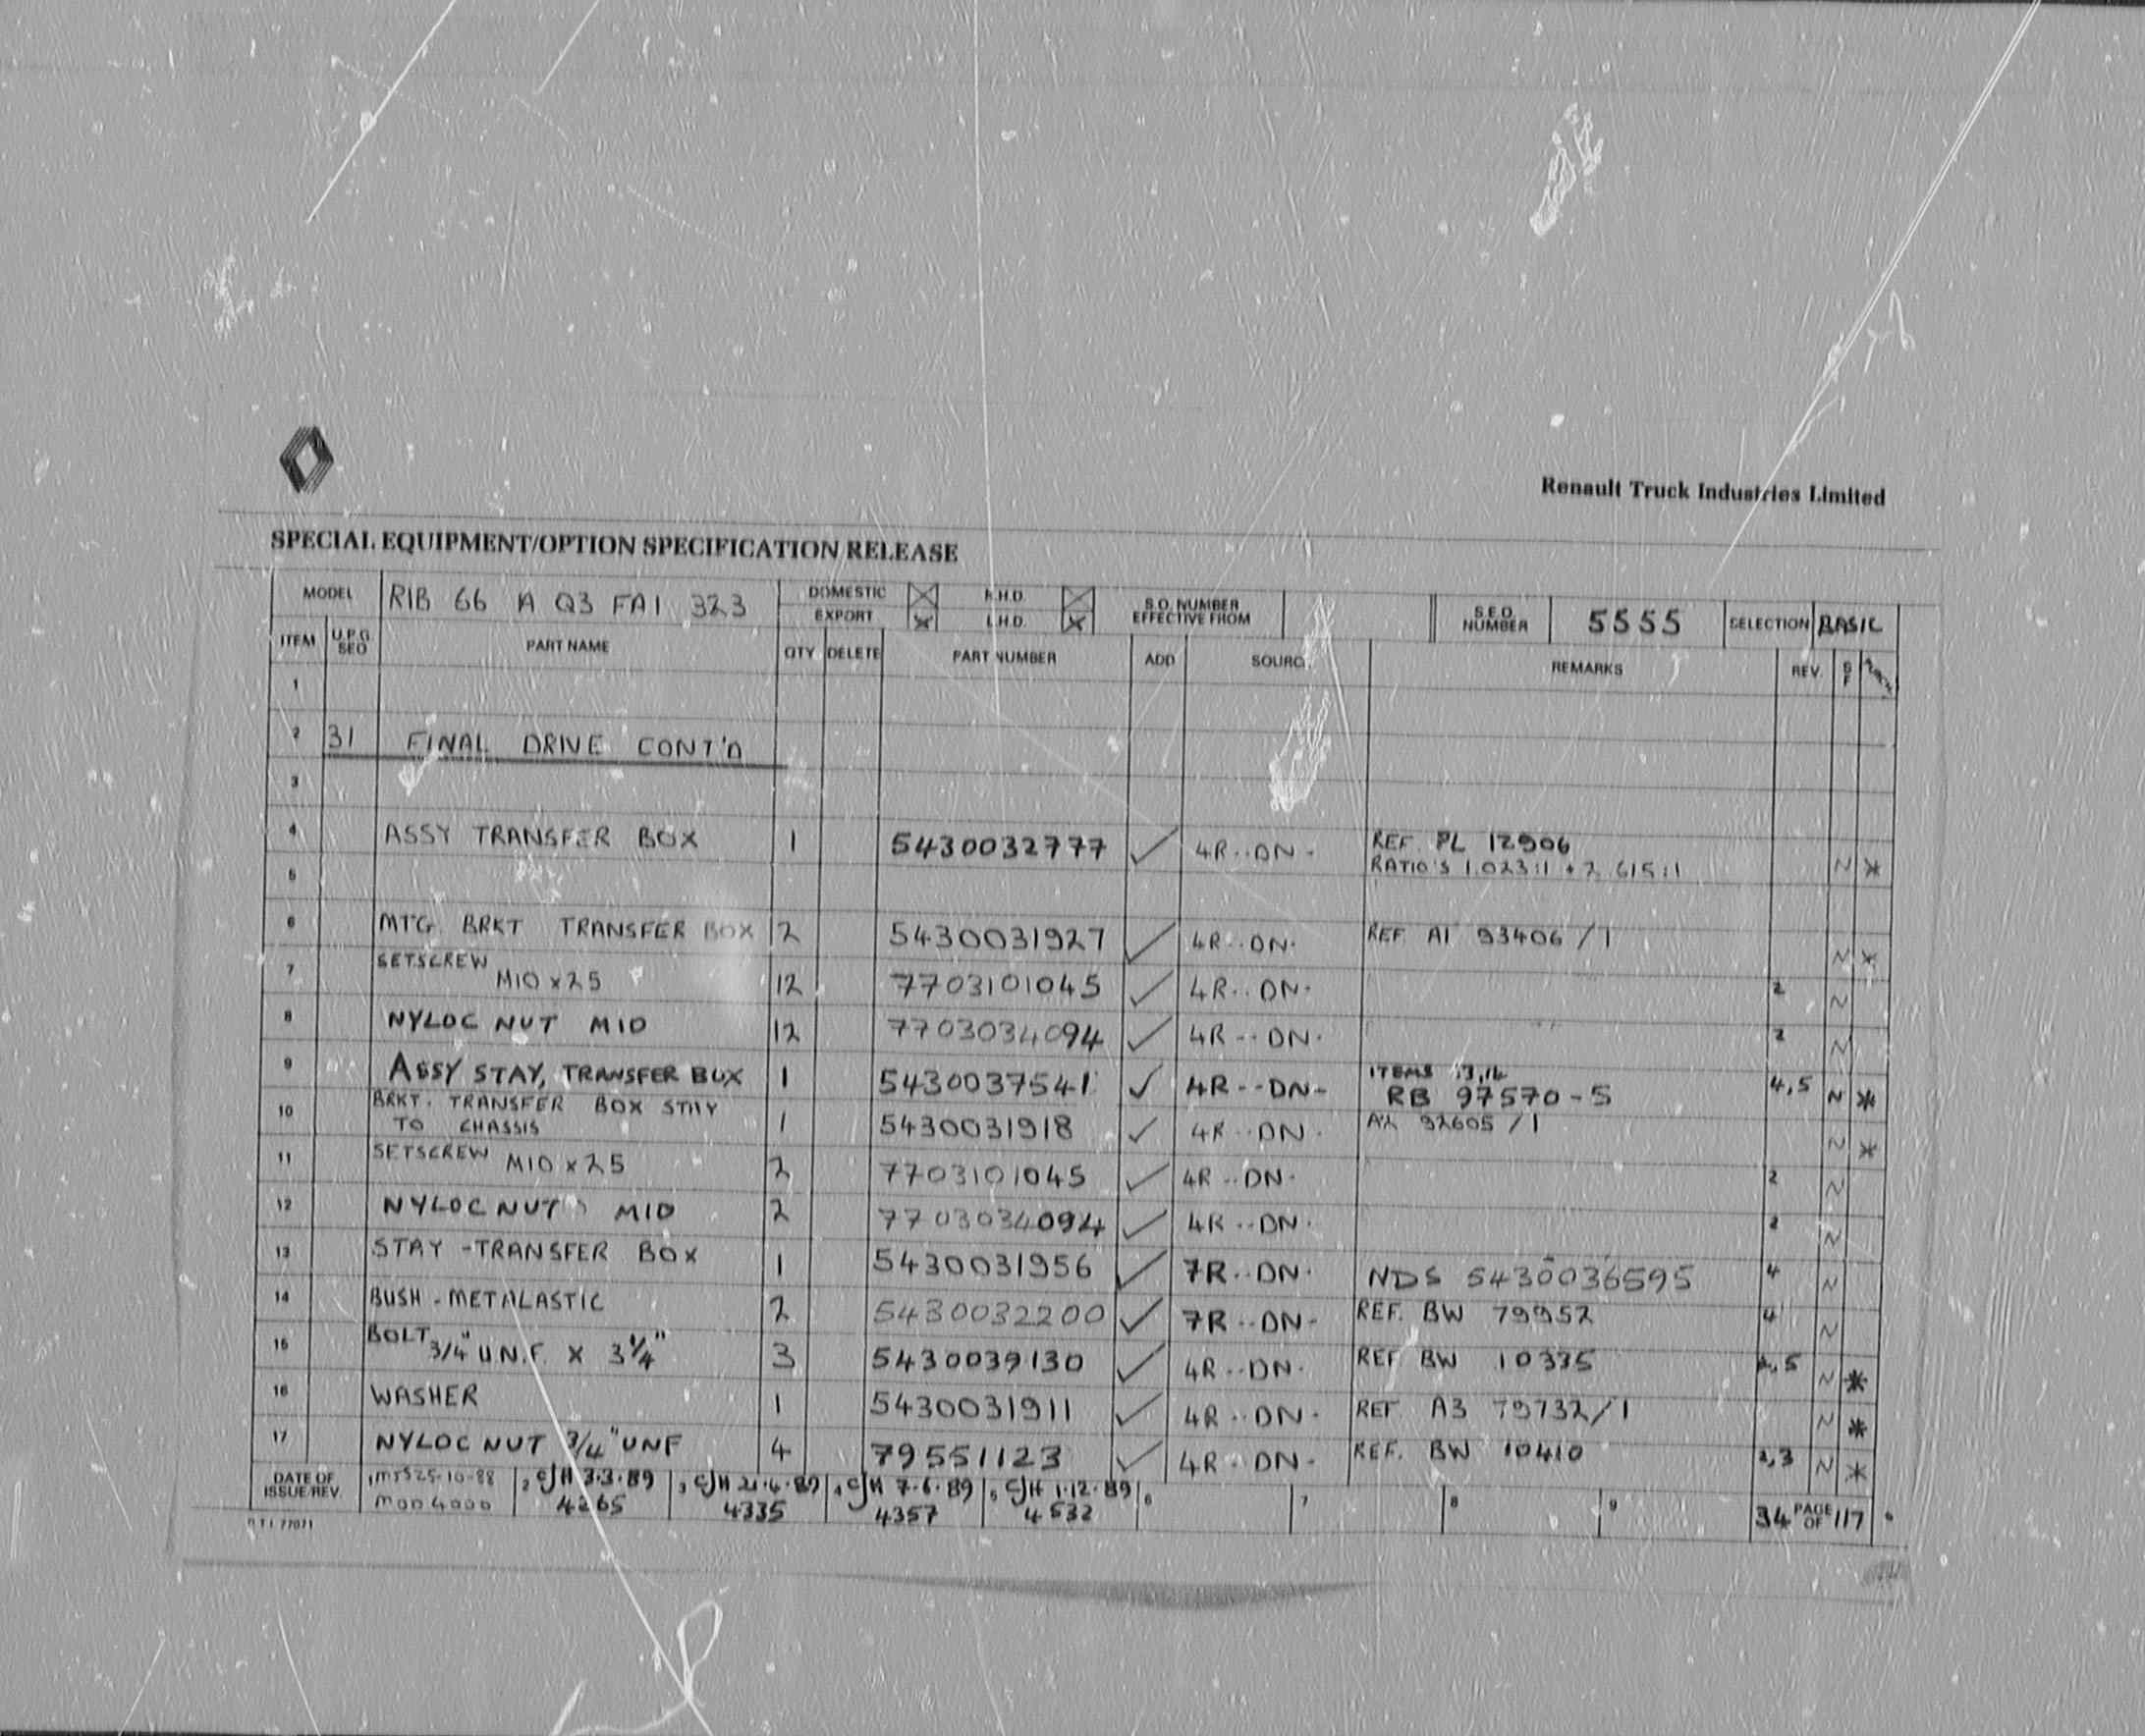 Renault Truck Industries Limited
SPECIAL EQUIPMENT/OPTION SPECIFICATION RELEASE
MODEL RIB 66 A Q3 FA1 323 DOMESTIC R.H.D. S.O. NUMBER EFFECTIVE FROM S.E.O. NUMBER 5555 SELECTION BASIC
EXPORT L.H.D.
ITEM U.P.G. SEO PART NAME QTY DELETE PART NUMBER ADD SOURC REMARKS REV.
1
2 31 FINAL DRIVE CONT'D
3
4 ASSY TRANSFER BOX 1 5430032777 ✓ 4R··DN· REF. PL 12906
RATIO'S 1.023:1 + 2.615:1 N *
5
6 MTG. BRKT TRANSFER BOX 2 5430031927 ✓ 4R··DN· REF. A1 93406/1 N *
7 SETSCREW M10 x 25 12 7703101045 ✓ 4R··DN· 2 N
8 NYLOC NUT M10 12 7703034094 ✓ 4R··DN· 2 N
9 ASSY STAY, TRANSFER BOX 1 5430037541 ✓ 4R--DN- ITEMS 13,14
RB 97570-5 4,5 N *
10 BRKT. TRANSFER BOX STAY
TO CHASSIS 1 5430031918 ✓ 4R··DN· A2 92605/1 N *
11 SETSCREW M10 x 25 2 7703101045 ✓ 4R··DN· 2 N
12 NYLOC NUT M10 2 7703034094 ✓ 4R··DN· 2 N
13 STAY - TRANSFER BOX 1 5430031956 ✓ 7R··DN· NDS 5430036595 4 N
14 BUSH - METALASTIC 2 5430032200 ✓ 7R··DN- REF. BW 79952 4 N
15 BOLT 3/4" U.N.F. X 3 1/4" 3 5430039130 ✓ 4R··DN· REF. BW 10335 5 N *
16 WASHER 1 5430031911 ✓ 4R··DN· REF. A3 79732/1 N *
17 NYLOC NUT 3/4" UNF 4 79551123 ✓ 4R··DN· REF. BW 10410 2,3 N *
DATE OF ISSUE/REV. 1 25-10-88 2 CJH 3·3·89 3 CJH 21·4·89 4 CJH 7·6·89 5 CJH 1·12·89 6 7 8 9 34 PAGE OF 117
MOD 4000 4265 4335 4357 4532
R.T.I. 77071